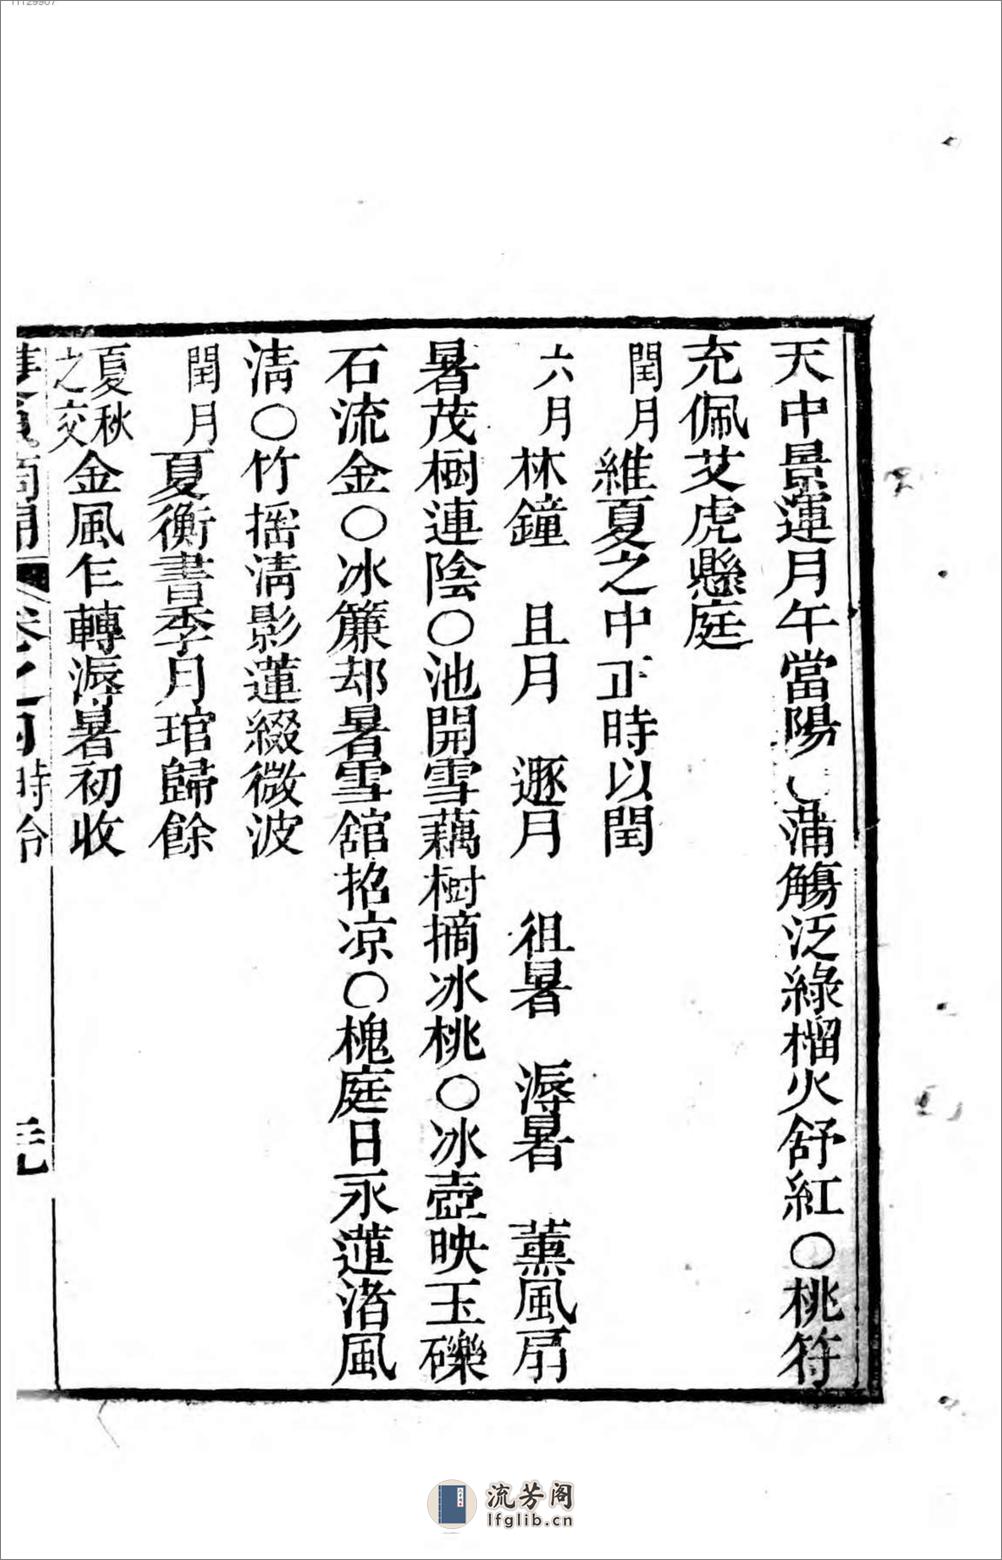 天中景運月午當陽○蒲觴泛綠榴火舒紅○桃符
充佩艾虎懸庭
閏月維夏之中正時以閏
六月林鐘 且月 遯月 徂暑 溽暑 薰風扇
暑茂樹連陰○池開雪藕樹摘冰桃○冰壺映玉礫
石流金○冰簾却暑雪舘招凉○槐庭日永蓮渚風
淸○竹搖淸影蓮綴微波
閏月 夏衡書季月琯歸餘
夏秋之交金風乍轉溽暑初收
卷之四 時令
流芳阁
lfglib.cn